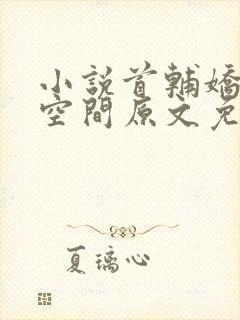 小說首輔嬌
空間原文免
夏璃心